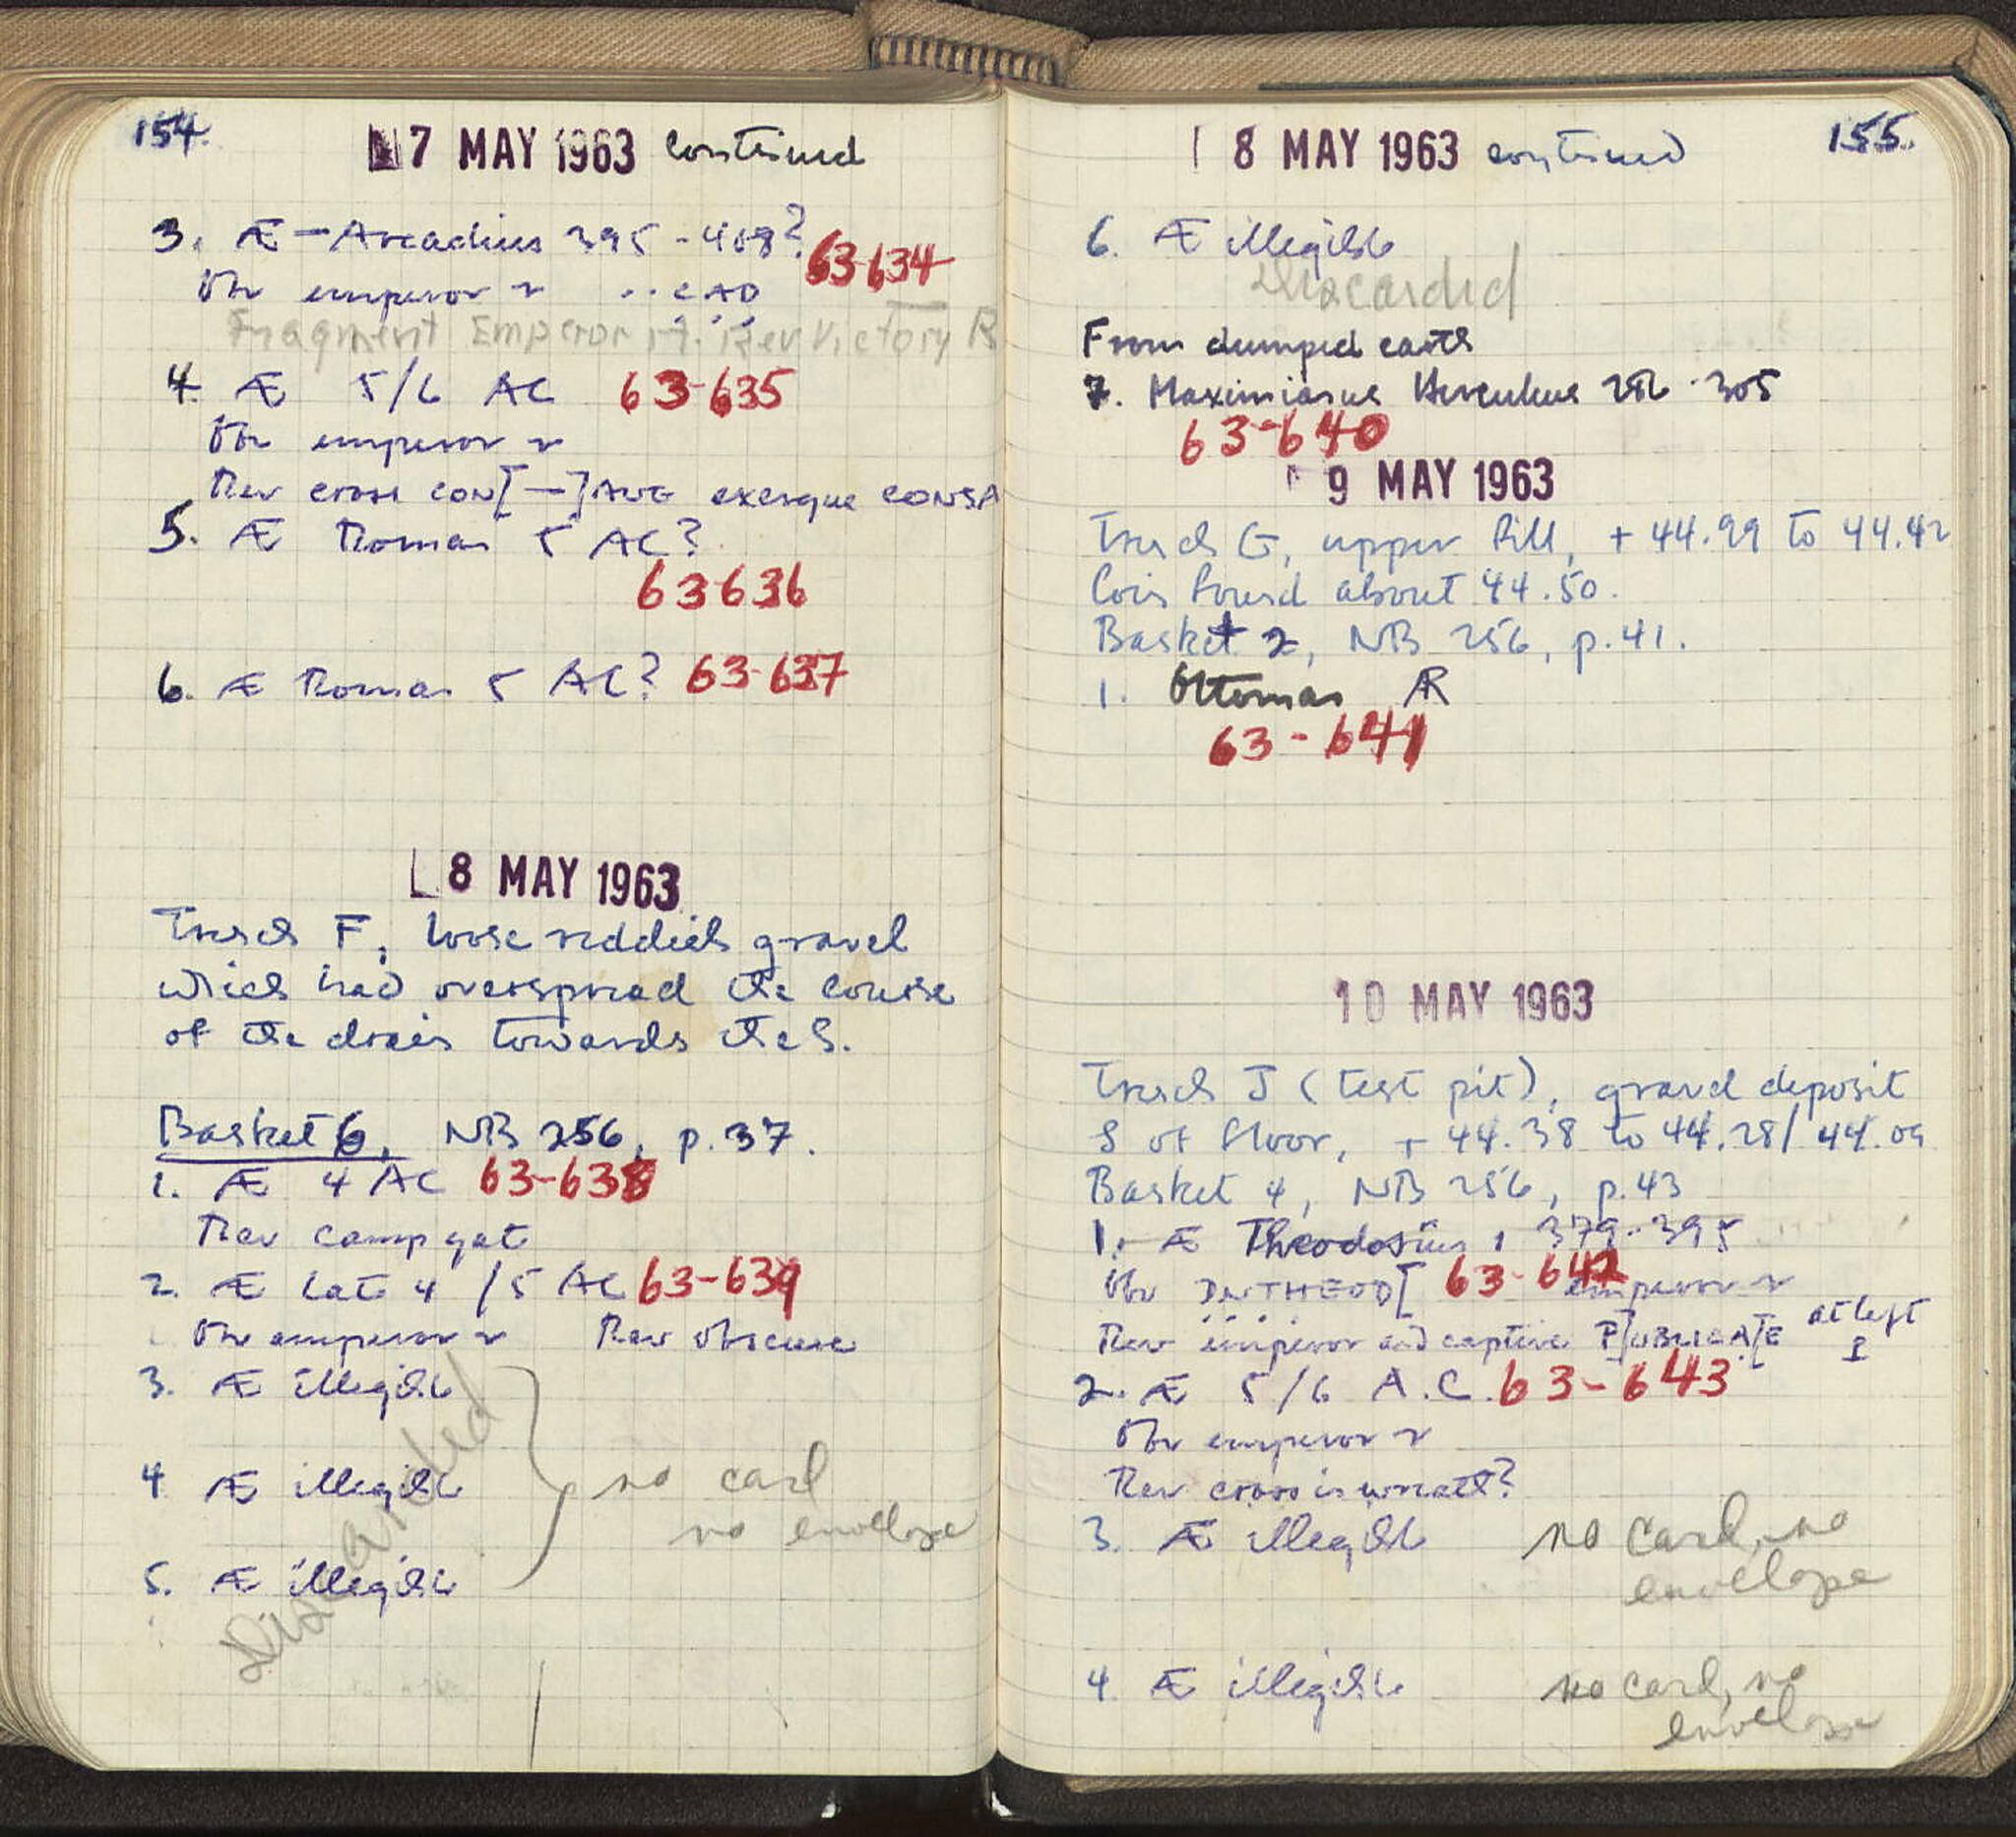 154.
7 MAY 1963 continued
3. Æ – Arcadius 395-408? 63-634
Obv emperor r ..CAD
Fragment Emperor rt. Rev Victory
4. Æ 5/6 AC 63-635
Obv emperor r
Rev cross CON[—]AVG exergue CONSA
5. Æ Roman 5 AC?
63-636
6. Æ Roman 5 AC? 63-637
8 MAY 1963
Trench F, loose reddish gravel
which had overspread the course
of the drain towards the S.
Basket 6, NB 256, p. 37.
1. Æ 4 AC 63-638
Rev camp gate
2. Æ late 4 / 5 AC 63-639
Obv emperor r Rev obscure
3. Æ illegible
4 Æ illegible no card
no envelope
5. Æ illegible
Discarded
155.
8 MAY 1963 continued
6. Æ illegible
Discarded
From dumped earth
7. Maximianus Herculius 286-305
63-640
9 MAY 1963
Trench G, upper fill, + 44.99 to 44.42
Coin found about 44.50.
Basket 2, NB 256, p. 41.
1. Ottoman AR
63-641
10 MAY 1963
Trench J (test pit), gravel deposit
S of floor, + 44.38 to 44.28/44.09
Basket 4, NB 256, p. 43
1. Æ Theodosius I 379-395
Obv DNTHEOD[ 63-642 emperor r
Rev emperor and captive P]UBLICA[E at left
2. Æ 5/6 A.C. 63-643
Obv emperor r
Rev cross in wreath?
3. Æ illegible no card, no
envelope
4 Æ illegible no card, no
envelope